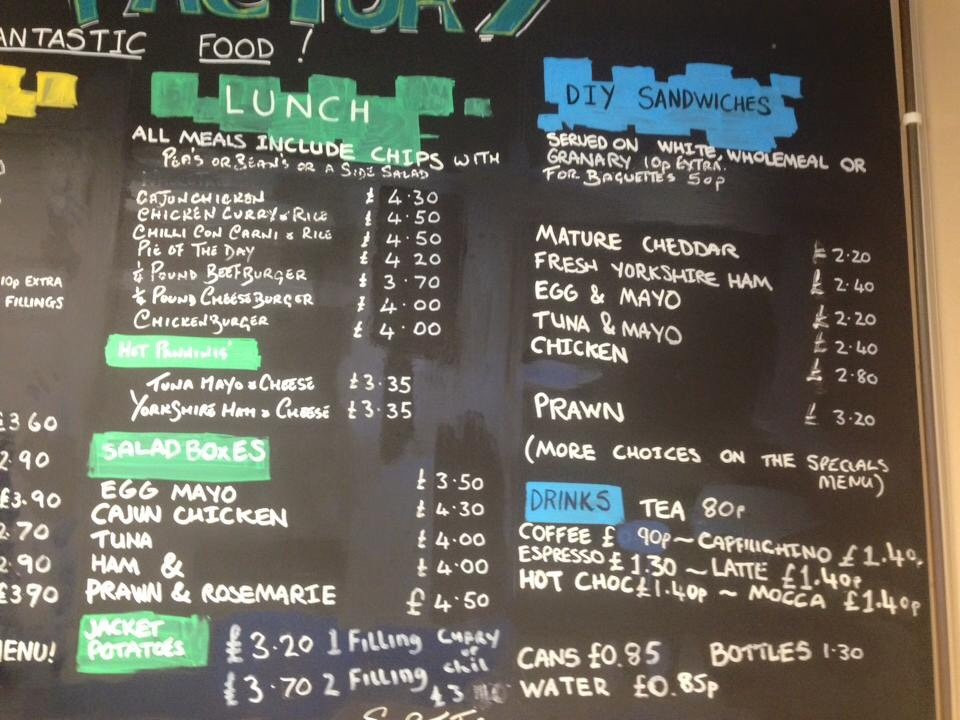 FACTORY
ANTASTIC FOOD !
10p EXTRA
FILLINGS
£3.60
2.90
£3.90
2.70
2.90
£3.90
MENU!
LUNCH
ALL MEALS INCLUDE CHIPS WITH
PEA'S OR BEAN'S OR A SIDE SALAD
CAJUN CHICKEN £ 4.30
CHICKEN CURRY & RICE £ 4.50
CHILLI CON CARNI & RICE £ 4.50
PIE OF THE DAY £ 4.20
¼ POUND BEEFBURGER £ 3.70
¼ POUND CHEESEBURGER £ 4.00
CHICKENBURGER £ 4.00
HOT PANNINIS'
TUNA MAYO & CHEESE £3.35
YORKSHIRE HAM & CHEESE £3.35
SALAD BOXES
EGG MAYO £ 3.50
CAJUN CHICKEN £ 4.30
TUNA £ 4.00
HAM & £ 4.00
PRAWN & ROSEMARIE £ 4.50
JACKET POTATOES
£3.20 1 Filling CURRY or chil
£3.70 2 Filling £3
DIY SANDWICHES
SERVED ON WHITE, WHOLEMEAL OR
GRANARY 10p EXTRA.
FOR BAGUETTE'S 50p
MATURE CHEDDAR £ 2.20
FRESH YORKSHIRE HAM £ 2.40
EGG & MAYO £ 2.20
TUNA & MAYO £ 2.40
CHICKEN £ 2.80
PRAWN £ 3.20
(MORE CHOICES ON THE SPECIALS
MENU)
DRINKS TEA 80p
COFFEE £ 90p ~ CAPPIUCHINO £1.40p
ESPRESSO £1.30 ~ LATTE £1.40p
HOT CHOC £1.40p ~ MOCCA £1.40p
CANS £0.85 BOTTLES 1.30
WATER £0.85p